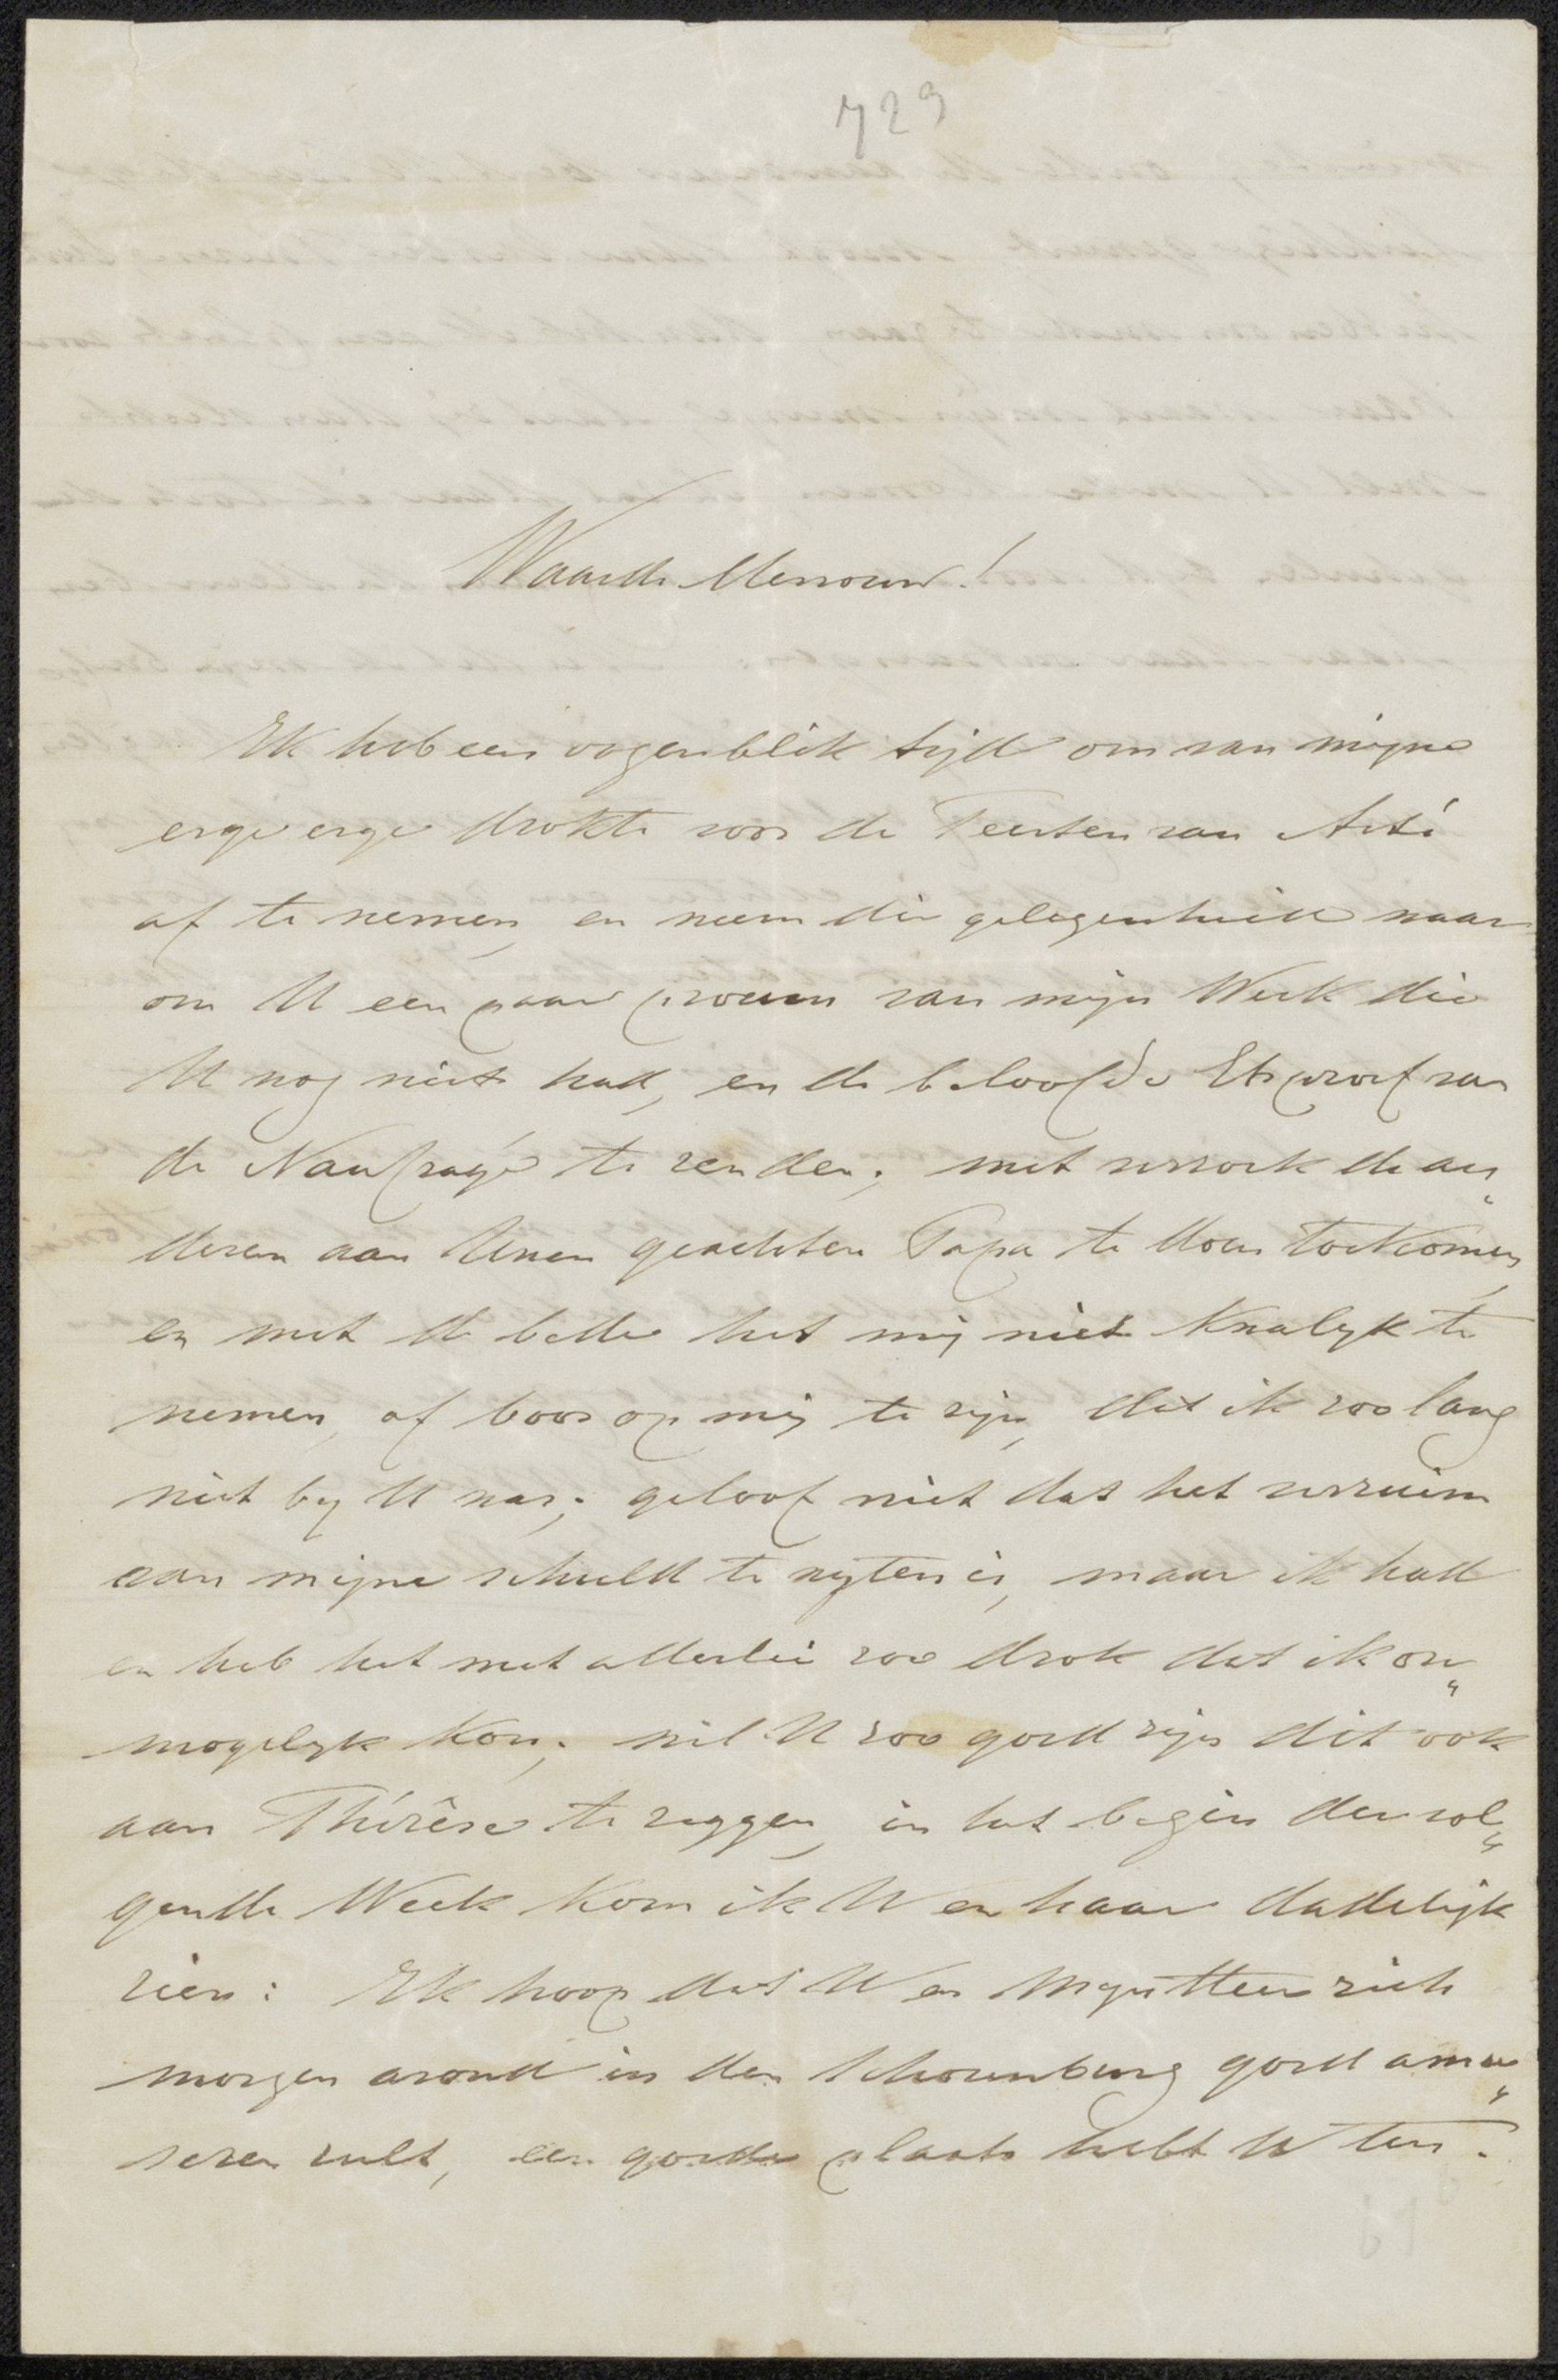 729
Waarde Mevrouw!
Ik heb een oogenblik tijd om van mijne
erge erge drokte voor de Feesten van Arti
af te nemen, en neem die gelegenheid waar
om U een paar proeven van mijn Werk die
U nog niet had, en de beloofde Etsproef van
de Naufragé te zenden; met verzoek de an„
deren aan Uwen geachten Papa te doen toekomen,
en met de bede het mij niet kwalyk te
nemen, of boos op mij te zijn, dat ik zoo lang
niet by U was; geloof niet dat het verzuim
aan mijne schuld te wyten is, maar ik had
en heb het met allerlei zoo drok dat ik on„
mogelyk kon; wil U zoo goed zijn dit ook
aan Thérèse te zeggen, in het begin der vol„
gende Week kom ik U en haar dadelijk
zien: Ik hoop dat U en
zich
morgen avond in den Schouwburg goed amu„
seren zult, een goede plaats hebt U ten